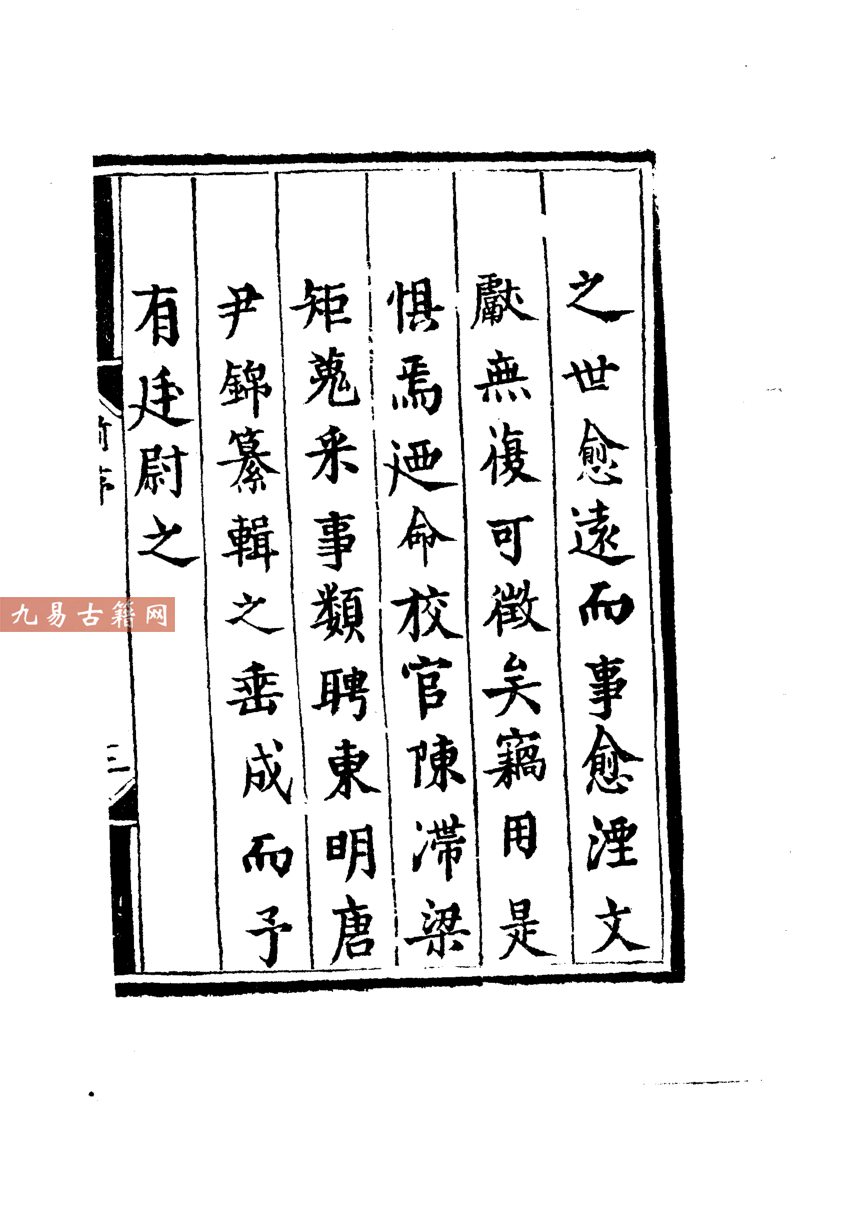 之世愈遠而事愈湮文
獻無復可徵矣竊用是
惧焉廼命校官陳滯梁
矩蒐采事類聘東明唐
尹錦纂輯之垂成而予
有廷尉之
前序
三
九易古籍网